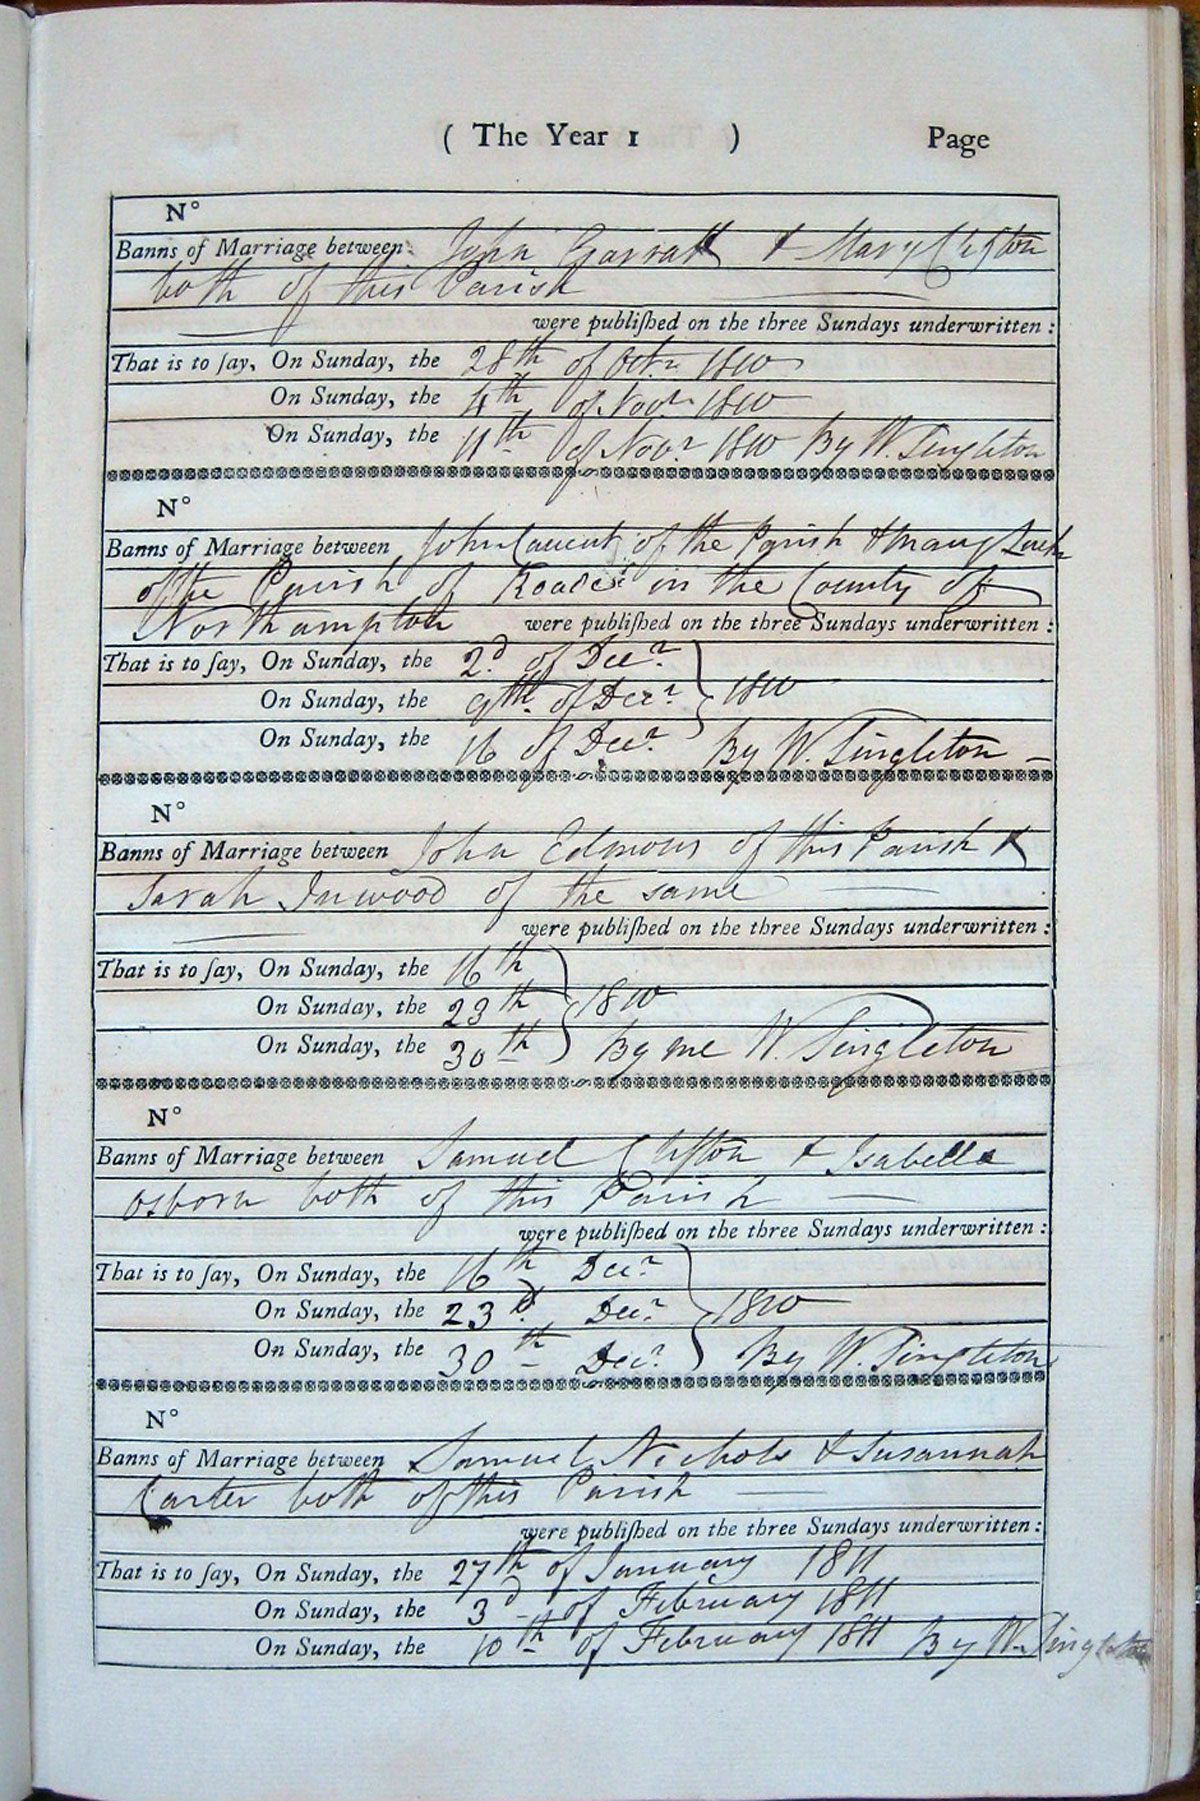 ( The Year 1 ) Page
N°
Banns of Marriage between John Garratt & Mary Clifton
both of this Parish
were publiſhed on the three Sundays underwritten :
That is to ſay, On Sunday, the 28th of Octr 1810
On Sunday, the 4th of Novr 1810
On Sunday, the 11th of Novr 1810 By W. Singleton
N°
Banns of Marriage between John of the Parish &
of the Parish of Roade in the County of
Northampton were publiſhed on the three Sundays underwritten :
That is to ſay, On Sunday, the 2d of Decr
On Sunday, the 9th of Decr 1810
On Sunday, the 16 of Decr By W. Singleton
N°
Banns of Marriage between John Edmons of this Parish &
Sarah Inwood of the same
were publiſhed on the three Sundays underwritten :
That is to ſay, On Sunday, the 16th
On Sunday, the 23th 1810
On Sunday, the 30th By me W. Singleton
N°
Banns of Marriage between Samuel Clifton & Isabella
Osborn both of this Parish
were publiſhed on the three Sundays underwritten :
That is to ſay, On Sunday, the 16th Decr
On Sunday, the 23d Decr 1810
On Sunday, the 30th Decr By W. Singleton
N°
Banns of Marriage between Samuel Nichols & Susannah
Carter both of this Parish
were publiſhed on the three Sundays underwritten :
That is to ſay, On Sunday, the 27th of January 1811
On Sunday, the 3d of February 1811
On Sunday, the 10th of February 1811 By W. Singleton